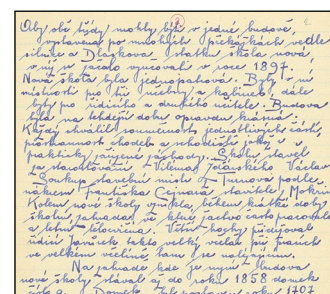 Aby obě třídy mohly býti v jedné budově,
vystavena po mnohých překážkách vedle
silnice a Dlaskova statku škola nová
v níž se začalo vyučovati v roce 1897.
Nová škola byla jednopatrová. Byly v ní
místnosti pro tři učebny a kabinet, dále
byty pro řídícího a druhého učitele. Budova
byla na tehdejší dobu opravdu krásná.
Každý chválil souměrnost jednotlivých částí,
prostrannost chodeb a schodiště jakož i
prakticky zařízené záchody. Školu stavěl
za starostování Viléma Václav
Boukup stavební mistr z Turnova podle
nákresu Františka stavitele
Kolem nové školy vznikla, během krátké doby
školní zahrada, ve které žactvo často pracovalo
a letní tělocvična. Včelí hochy přiděloval
řídící učitel Janoušek velký včelař při pracích
ve velkém včelíně, tam se nalézajícím.
Na zahradě kde je nyní budova
nové školy stával až do roku 1858 domek
číslo Domek roku 1707